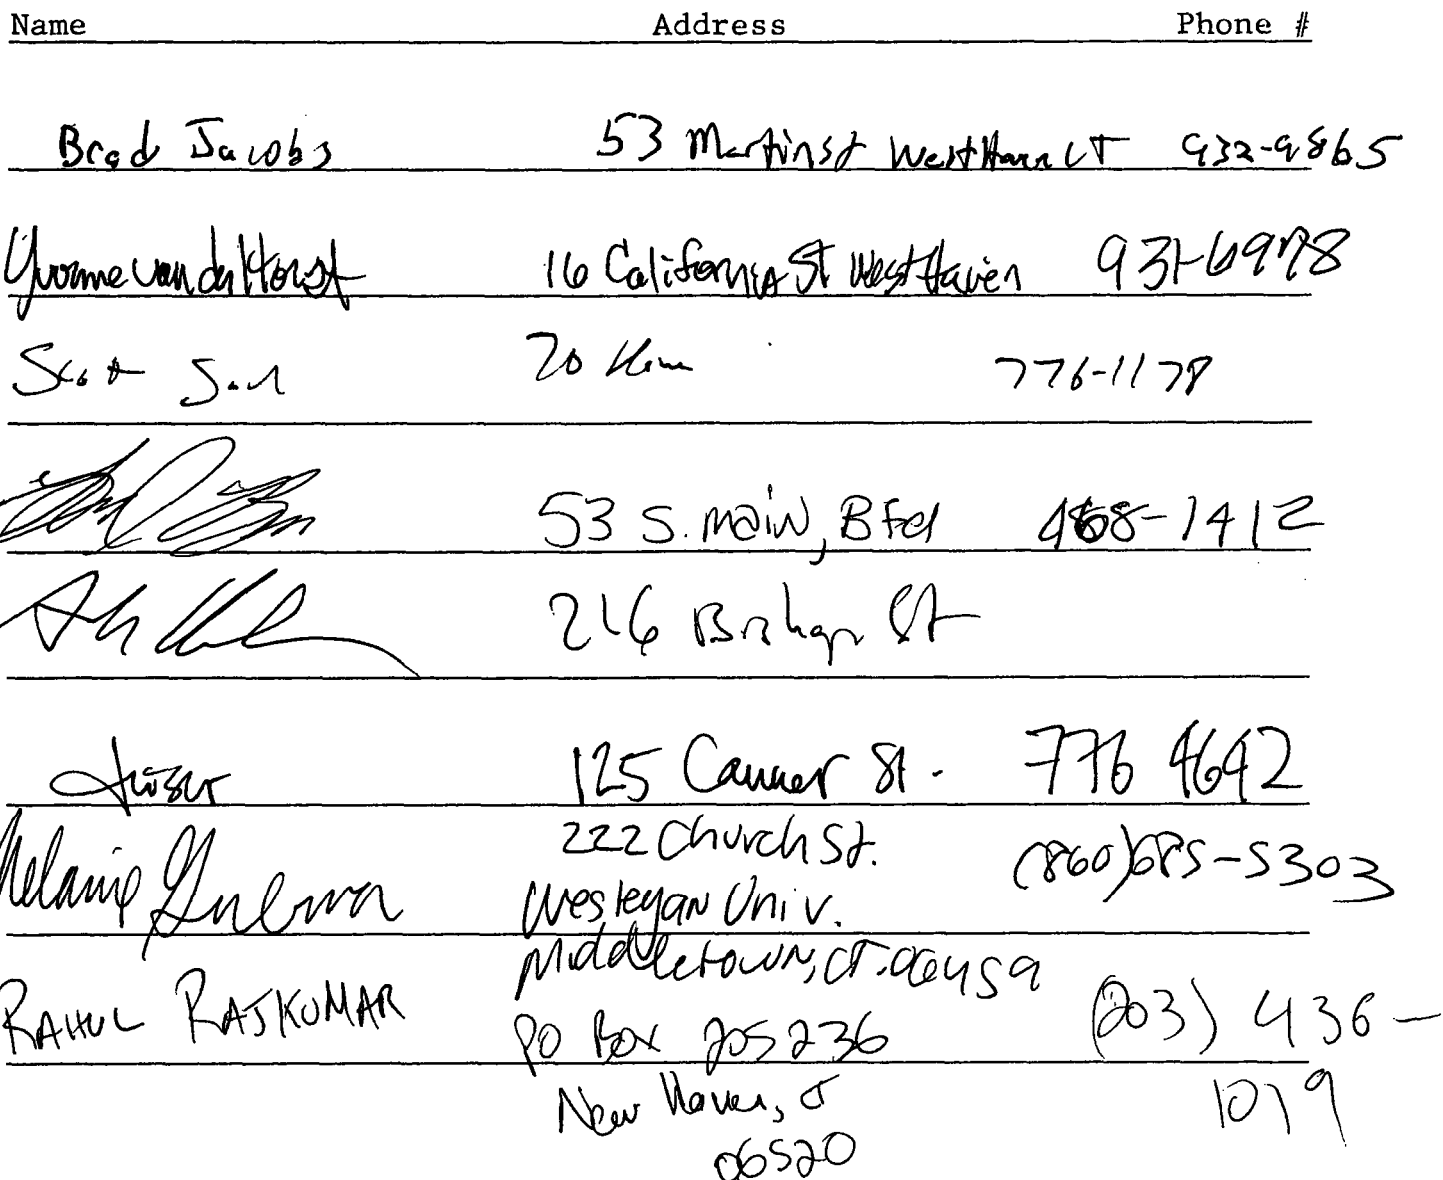 Name Address Phone #
Brad Jacobs 53 Martin st West Haven CT 932-9865
Yvonne van der Horst 16 California St West Haven 931-6978
Scott 20 776-1178
53 S. Main, Bfd 468-1412
216 Bishop St
125 Canner St. 776 4642
Melanie 222 Church St. (860)685-5303
Wesleyan Univ.
Middletown, CT. 06459
RAHUL RAJKUMAR PO Box 205236 (203) 436-
New Haven, CT 1079
06520